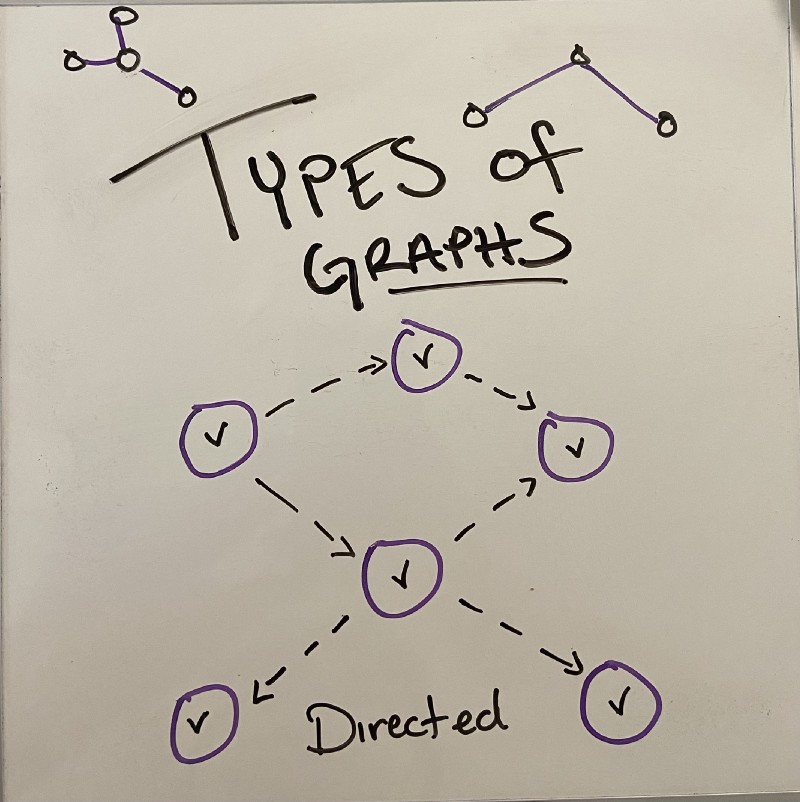 TYPES of
GRAPHS
v
v
v
v
v
v
Directed